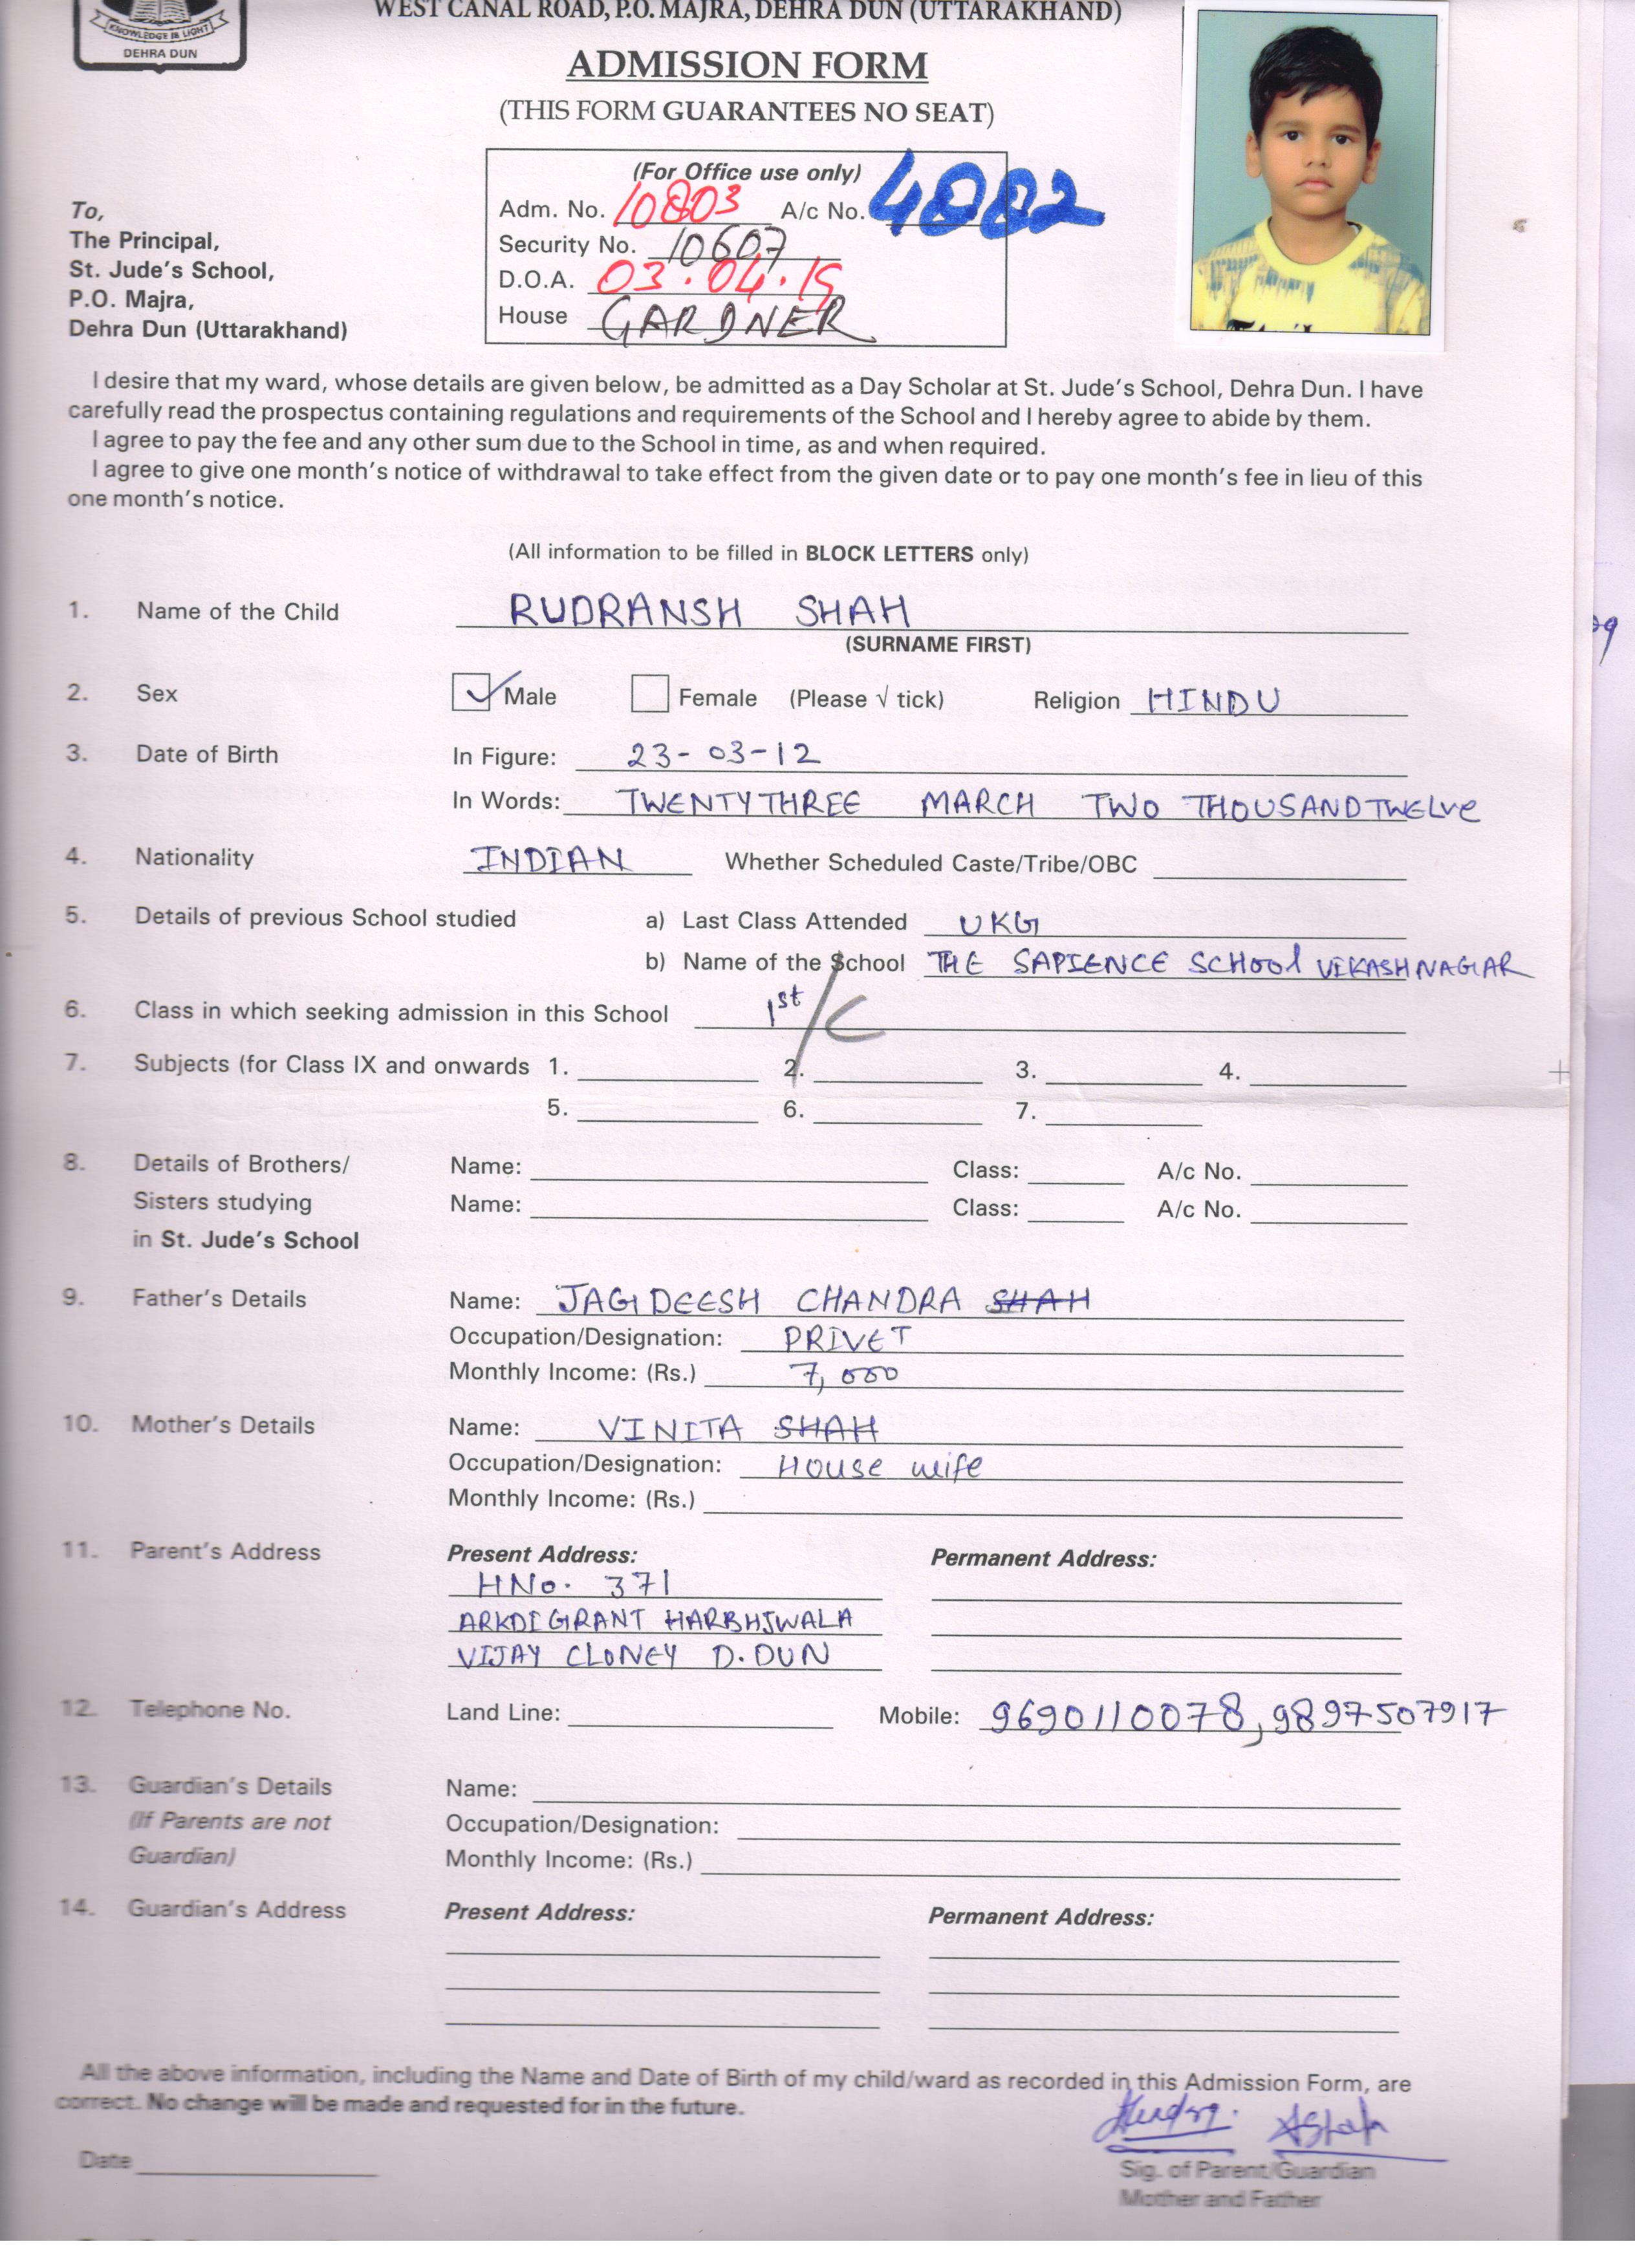 WEST CANAL ROAD, P.O. MAJRA, DEHRA DUN (UTTARAKHAND)
KNOWLEDGE IS LIGHT
DEHRA DUN
ADMISSION FORM
(THIS FORM GUARANTEES NO SEAT)
(For Office use only)
Adm. No. 10803 A/c No. 4002
Security No. 10607
D.O.A. 03.04.19
House GARDNER
To,
The Principal,
St. Jude's School,
P.O. Majra,
Dehra Dun (Uttarakhand)
I desire that my ward, whose details are given below, be admitted as a Day Scholar at St. Jude's School, Dehra Dun. I have
carefully read the prospectus containing regulations and requirements of the School and I hereby agree to abide by them.
I agree to pay the fee and any other sum due to the School in time, as and when required.
I agree to give one month's notice of withdrawal to take effect from the given date or to pay one month's fee in lieu of this
one month's notice.
(All information to be filled in BLOCK LETTERS only)
1. Name of the Child RUDRANSH SHAH
(SURNAME FIRST)
2. Sex ✓ Male Female (Please √ tick) Religion HINDU
3. Date of Birth In Figure: 23-03-12
In Words: TWENTYTHREE MARCH TWO THOUSAND TWELVE
4. Nationality INDIAN Whether Scheduled Caste/Tribe/OBC
5. Details of previous School studied a) Last Class Attended UKG
b) Name of the School THE SAPIENCE SCHOOl VIKASHNAGAR
6. Class in which seeking admission in this School 1st/C
7. Subjects (for Class IX and onwards 1. 2. 3. 4.
5. 6. 7.
8. Details of Brothers/ Name: Class: A/c No.
Sisters studying Name: Class: A/c No.
in St. Jude's School
9. Father's Details Name: JAGDEESH CHANDRA SHAH
Occupation/Designation: PRIVET
Monthly Income: (Rs.) 7,000
10. Mother's Details Name: VINITA SHAH
Occupation/Designation: House wife
Monthly Income: (Rs.)
11. Parent's Address Present Address: Permanent Address:
HNo. 371
ARKDIGRANT HARBHJWALA
VIJAY CLONEY D.DUN
12. Telephone No. Land Line: Mobile: 9690110078, 9897507917
13. Guardian's Details Name:
(If Parents are not Occupation/Designation:
Guardian) Monthly Income: (Rs.)
14. Guardian's Address Present Address: Permanent Address:
All the above information, including the Name and Date of Birth of my child/ward as recorded in this Admission Form, are
correct. No change will be made and requested for in the future.
Date
Sig. of Parent/Guardian
Mother and Father